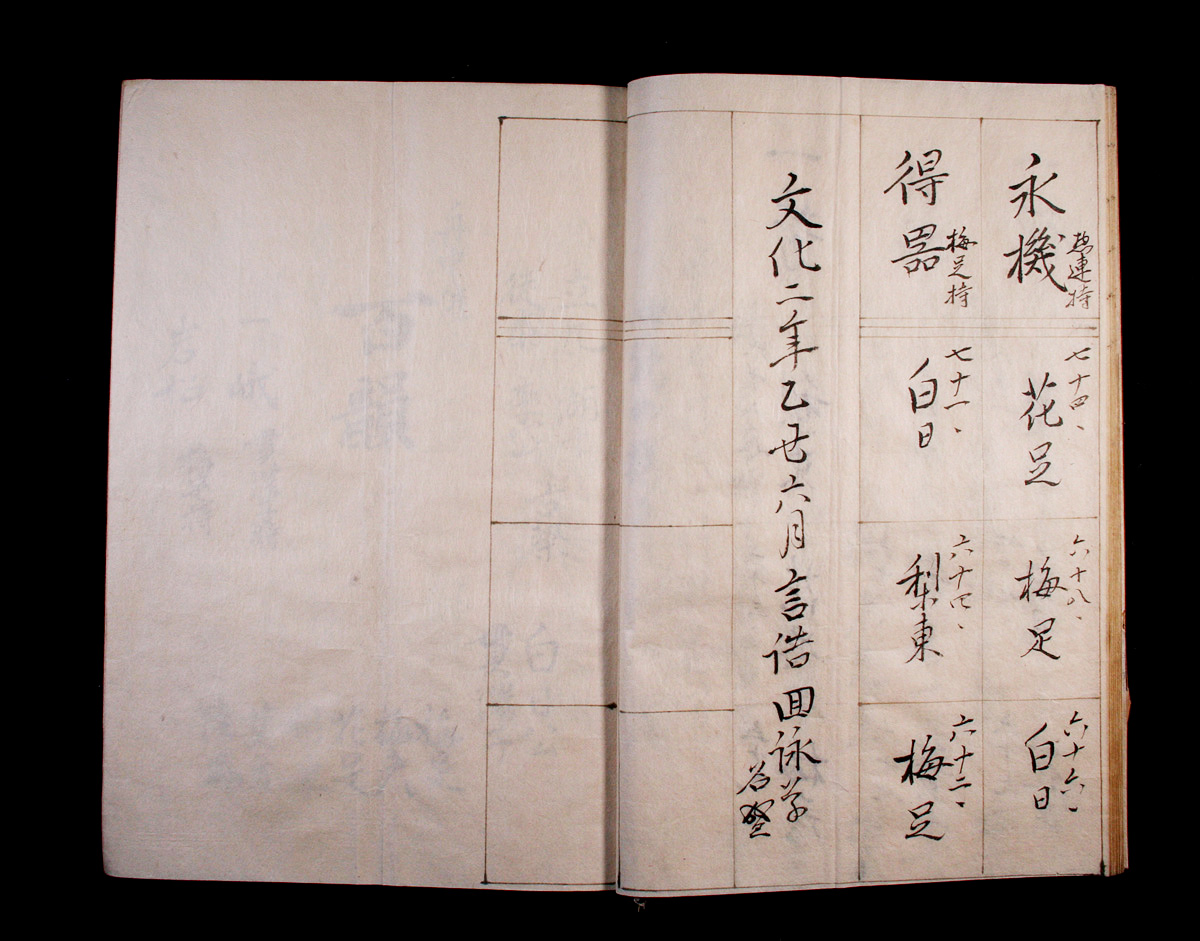 永機
連持
七十四、
花足
六十八、
梅足
六十六、
白日
得器
梅足持
七十一、
白日
六十四、
梨東
六十二、
梅足
文化二年乙丑六月言誥回詠草